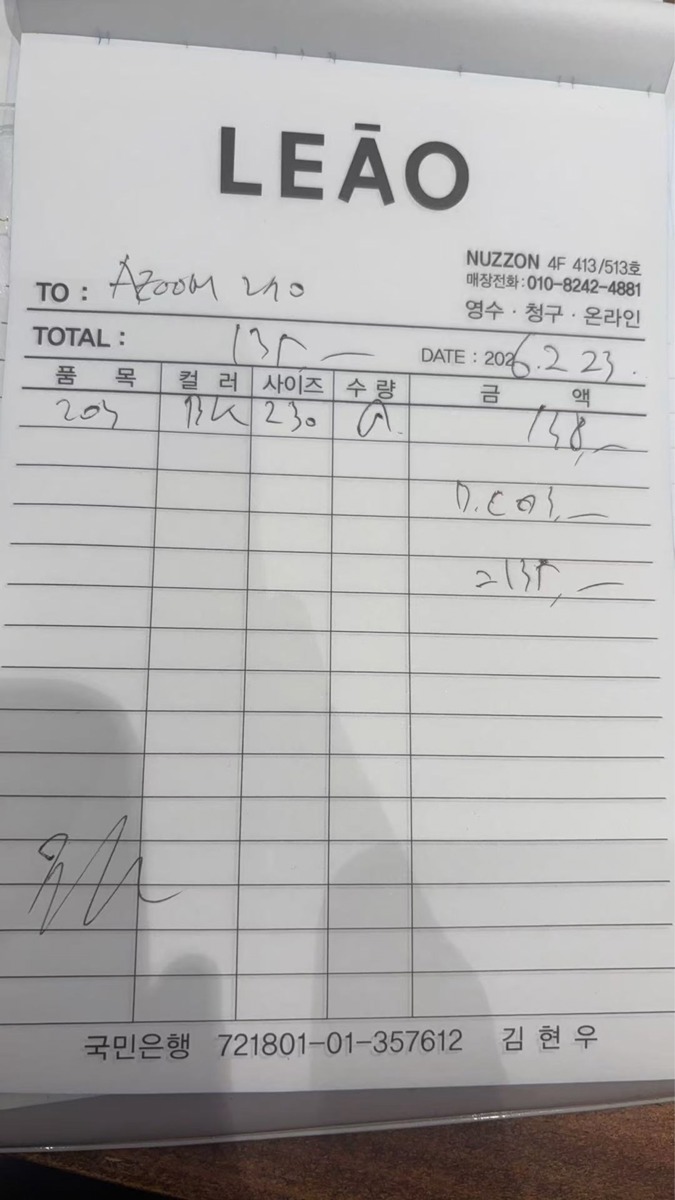 LEĀO
NUZZON 4F 413/513호
매장전화:010-8242-4881
영수 · 청구 · 온라인
TO : AZOOM
TOTAL : 135,—
DATE : 2026.2.23.
품 목 컬 러 사이즈 수 량 금 액
203 BK 230 138,—
D.C 03,—
135,—
국민은행 721801-01-357612 김 현 우